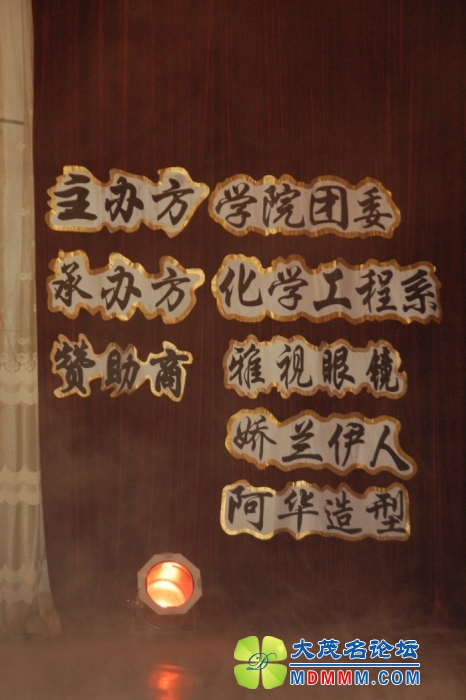 主办方 学院团委
承办方 化学工程系
赞助商 雅视眼镜
娇兰伊人
阿华造型
大茂名论坛
MDMMM.COM